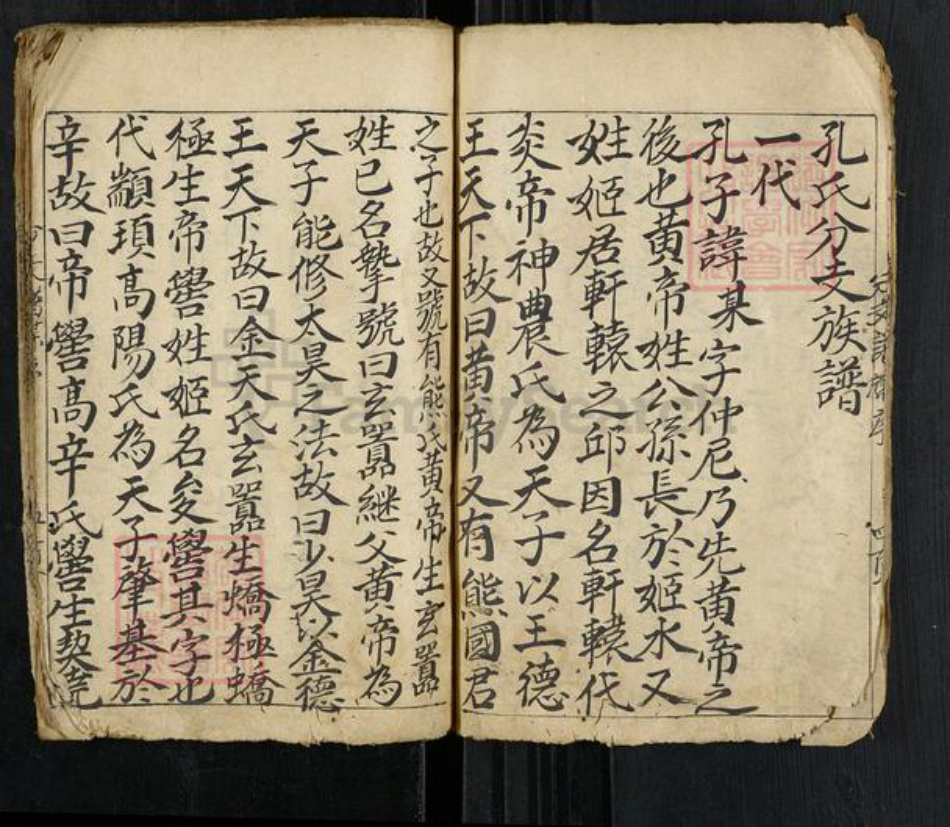 孔氏分支族譜
一代
孔子諱某字仲尼乃先黃帝之
後也黃帝姓公孫長於姬水又
姓姬居軒轅之邱因名軒轅代
炎帝神農氏為天子以王德
王天下故曰黃帝又有熊國君
之子也故又號有熊氏黃帝生玄囂
姓已名摯號曰玄囂繼父黃帝為
天子能修太昊之法故曰少昊以金德
王天下故曰金天氏玄囂生蟜極蟜
極生帝嚳姓姬名夋嚳其字也
代顓頊高陽氏為天子肇基於
辛故曰帝嚳高辛氏嚳生契堯
FamilySearch